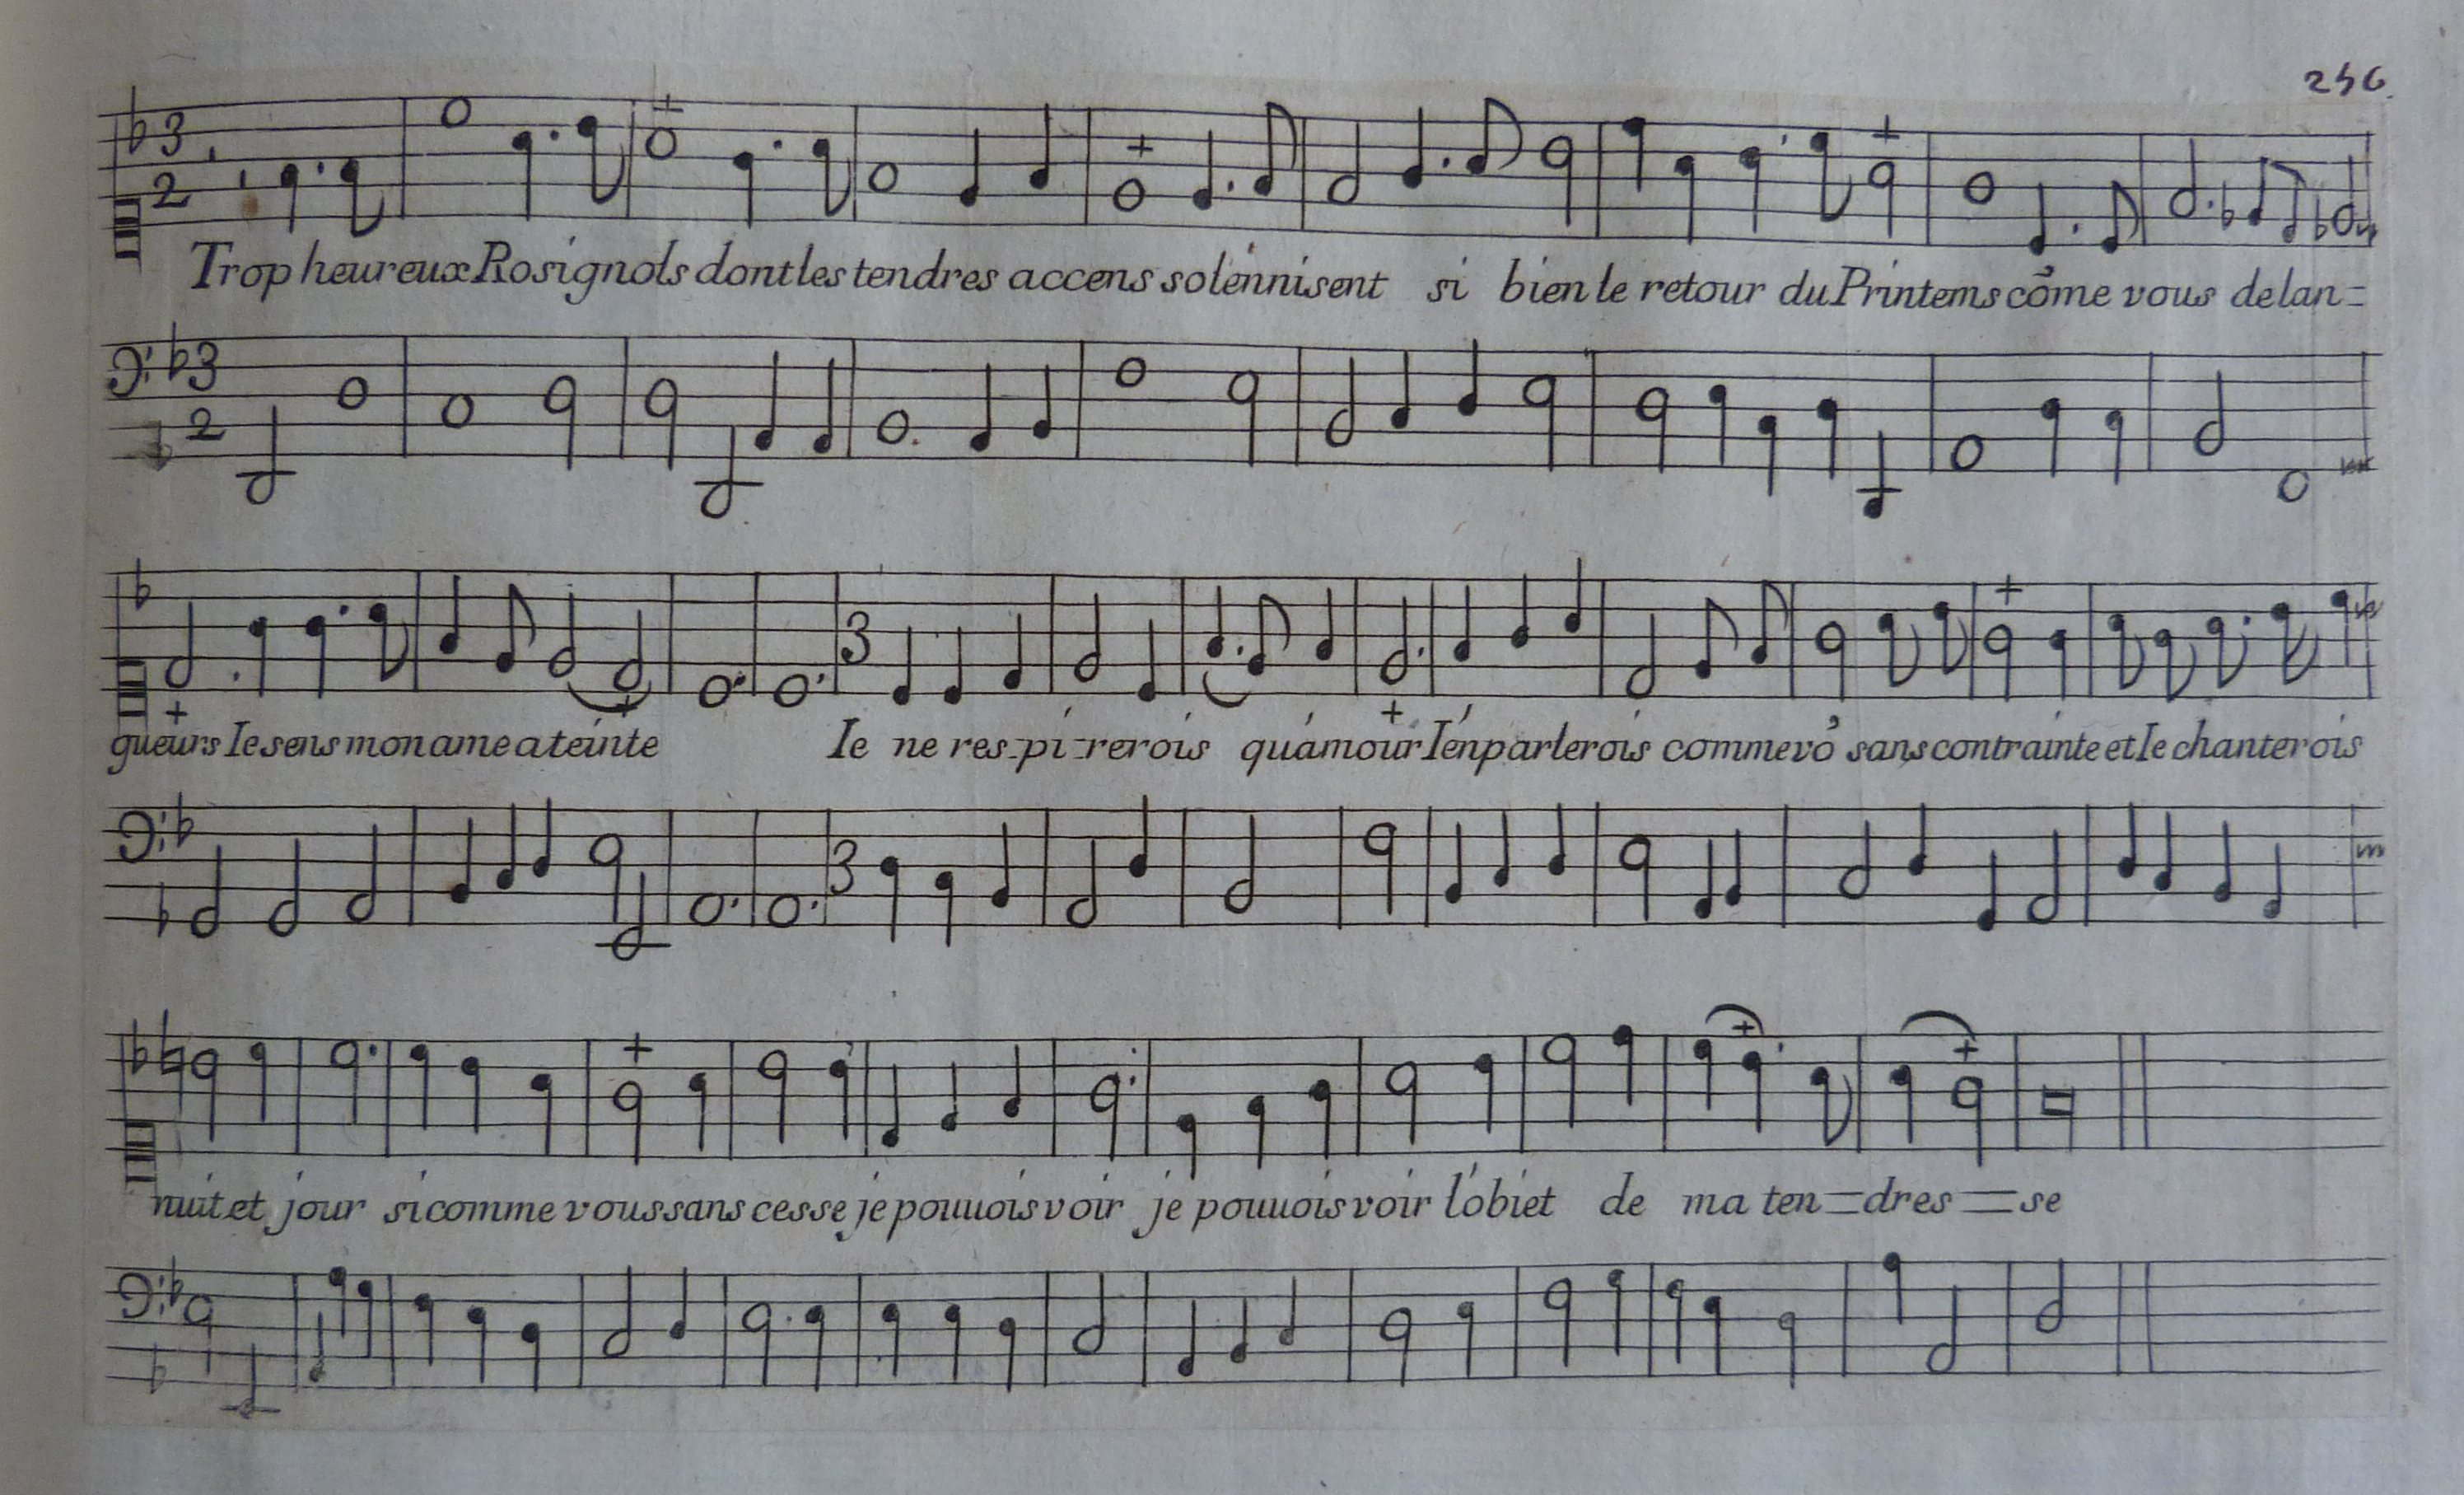 256.
3
2
Trop heureux Rosignols dont les tendres accens solénnisent si bien le retour du Printems cõme vous de lan=
3
2
3
gueurs Ie sens mon ame ateinte Ie ne res-pi-rerois qu'amour I'en parlerois comme vo' sans contrainte et Ie chanterois
3
nuit et jour si comme vous sans cesse je pouuois voir je pouuois voir l'obiet de ma ten=dres=se